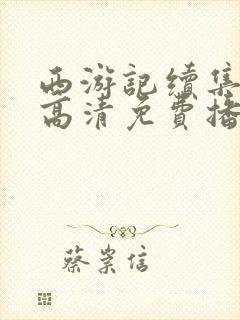 西游記續集
高清免費播
蔡崇信